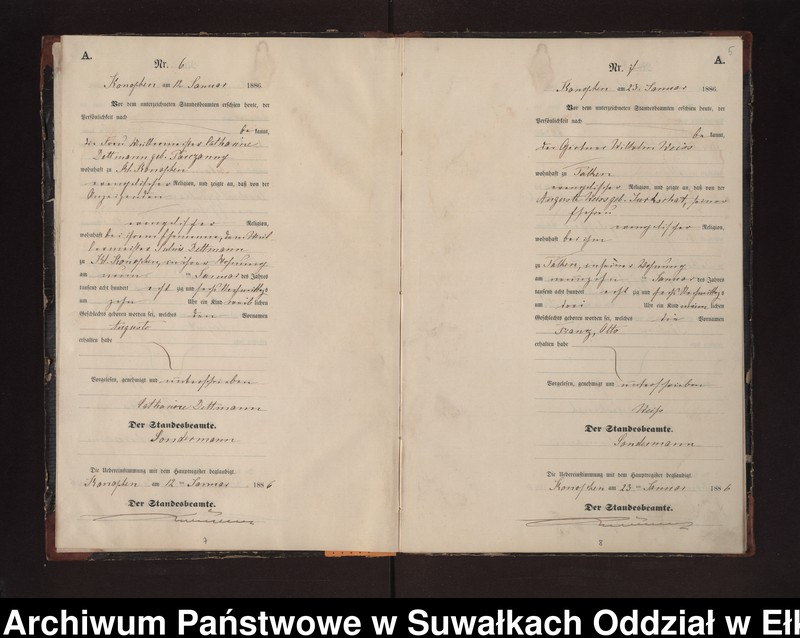 A.
Nr. 6
Konopken am 12. Januar 1886.
Vor dem unterzeichneten Standesbeamten erschien heute, der
Persönlichkeit nach
be kannt,
die Frau Müllermeister Catharine
Dettmann geb.
wohnhaft zu Kl. Konopken
evangelischer Religion, und zeigte an, daß von der
Anzeigenden
evangelischer Religion,
wohnhaft bei ihrem Ehemanne, dem Mül
lermeister Julius Dettmann
zu Kl. Konopken, in ihrer Wohnung
am neun ten Januar des Jahres
tausend acht hundert acht zig und sechs Nachmittags
um zehn Uhr ein Kind weib lichen
Geschlechts geboren worden sei, welches den Vornamen
Auguste
erhalten habe
Vorgelesen, genehmigt und unterschrieben
Catharine Dettmann
Der Standesbeamte.
Sondermann
Die Uebereinstimmung mit dem Hauptregister beglaubigt.
Konopken am 12ten Januar 1886
Der Standesbeamte.
7
5
A.
Nr. 7
Konopken am 23. Januar 1886.
Vor dem unterzeichneten Standesbeamten erschien heute, der
Persönlichkeit nach
be kannt,
der Gärtner Wilhelm Weiss
wohnhaft zu Talken
evangelischer Religion, und zeigte an, daß von der
Auguste Weiss geb. seiner
Ehefrau
evangelischer Religion,
wohnhaft bei ihm
zu Talken, in seiner Wohnung
am neunzehn ten Januar des Jahres
tausend acht hundert acht zig und sechs Nachmittags
um drei Uhr ein Kind männ lichen
Geschlechts geboren worden sei, welches die Vornamen
Franz, Otto
erhalten habe
Vorgelesen, genehmigt und unterschrieben
Weiss
Der Standesbeamte.
Sondermann
Die Uebereinstimmung mit dem Hauptregister beglaubigt.
Konopken am 23ten Januar 1886
Der Standesbeamte.
8
Archiwum Państwowe w Suwałkach Oddział w Ełk